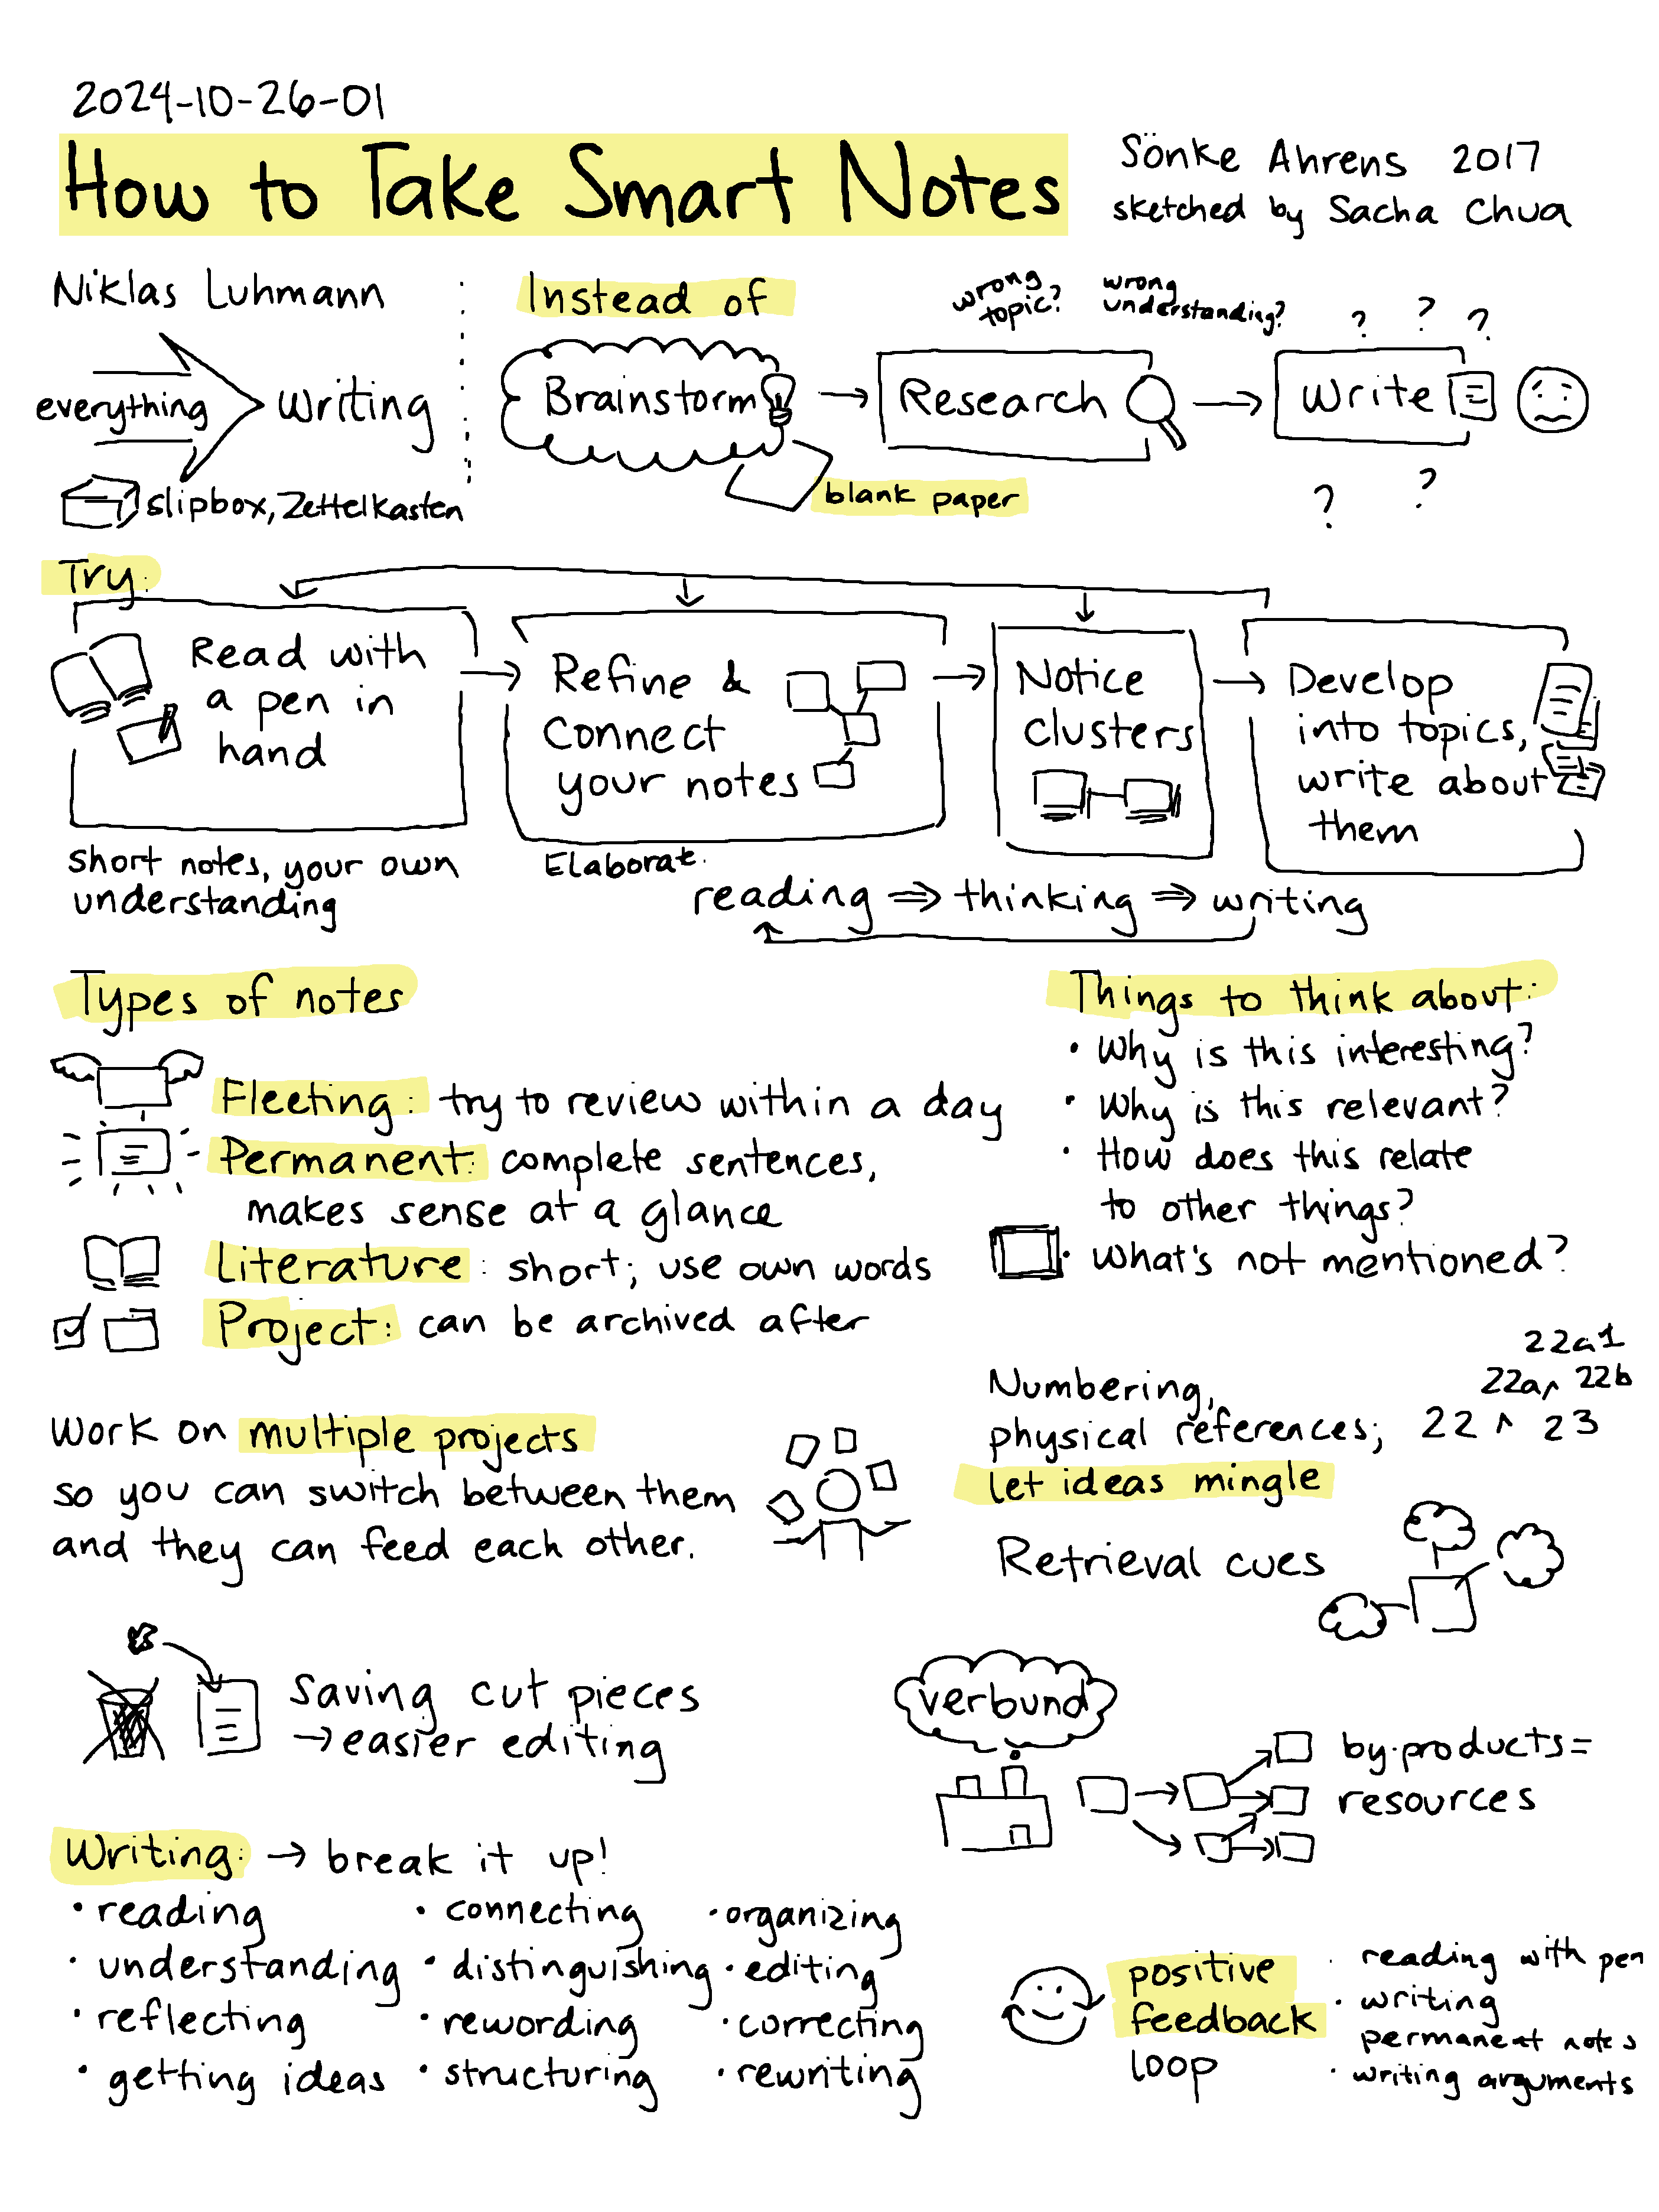 2024-10-26-01
How to Take Smart Notes
Sönke Ahrens 2017
sketched by Sacha Chua
Niklas Luhmann
everything
writing
slipbox, Zettelkasten
Instead of
Brainstorm
blank paper
wrong
topic?
Research
wrong
understanding?
? ? ?
Write
? ?
Try:
Read with
a pen in
hand
short notes, your own
understanding
Refine &
Connect
your notes
Elaborate.
Notice
clusters
Develop
into topics,
write about
them
reading ⇒ thinking ⇒ writing
Types of notes
Fleeting: try to review within a day
Permanent: complete sentences,
makes sense at a glance
Literature: short; use own words
Project: can be archived after
Things to think about:
• Why is this interesting?
• Why is this relevant?
• How does this relate
to other things?
• What's not mentioned?
Work on multiple projects
so you can switch between them
and they can feed each other.
Numbering,
physical references;
let ideas mingle
22a1
22a ^ 22b
22 ^ 23
Retrieval cues
Saving cut pieces
→ easier editing
verbund
by-products =
resources
Writing: → break it up!
• reading
• understanding
• reflecting
• getting ideas
• connecting
• distinguishing
• rewording
• structuring
• organizing
• editing
• correcting
• rewriting
positive
feedback
loop
• reading with pen
• writing
permanent notes
• writing arguments